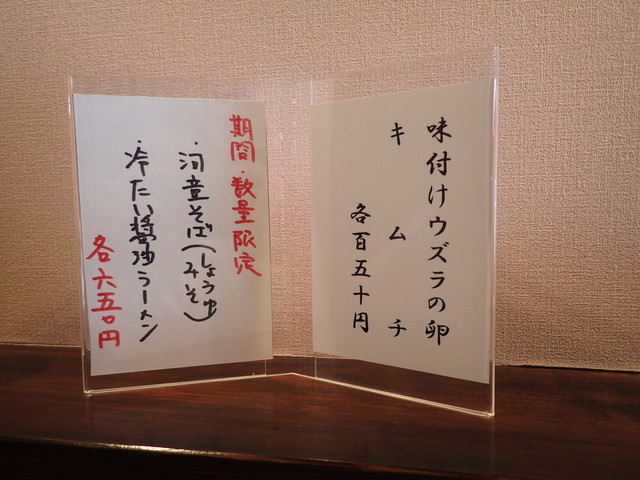 味付けウズラの卵
キムチ
各百五十円
期間・数量限定
・河童そば(しょうゆ
みそ)
・冷たい醤油ラーメン
各六五〇円